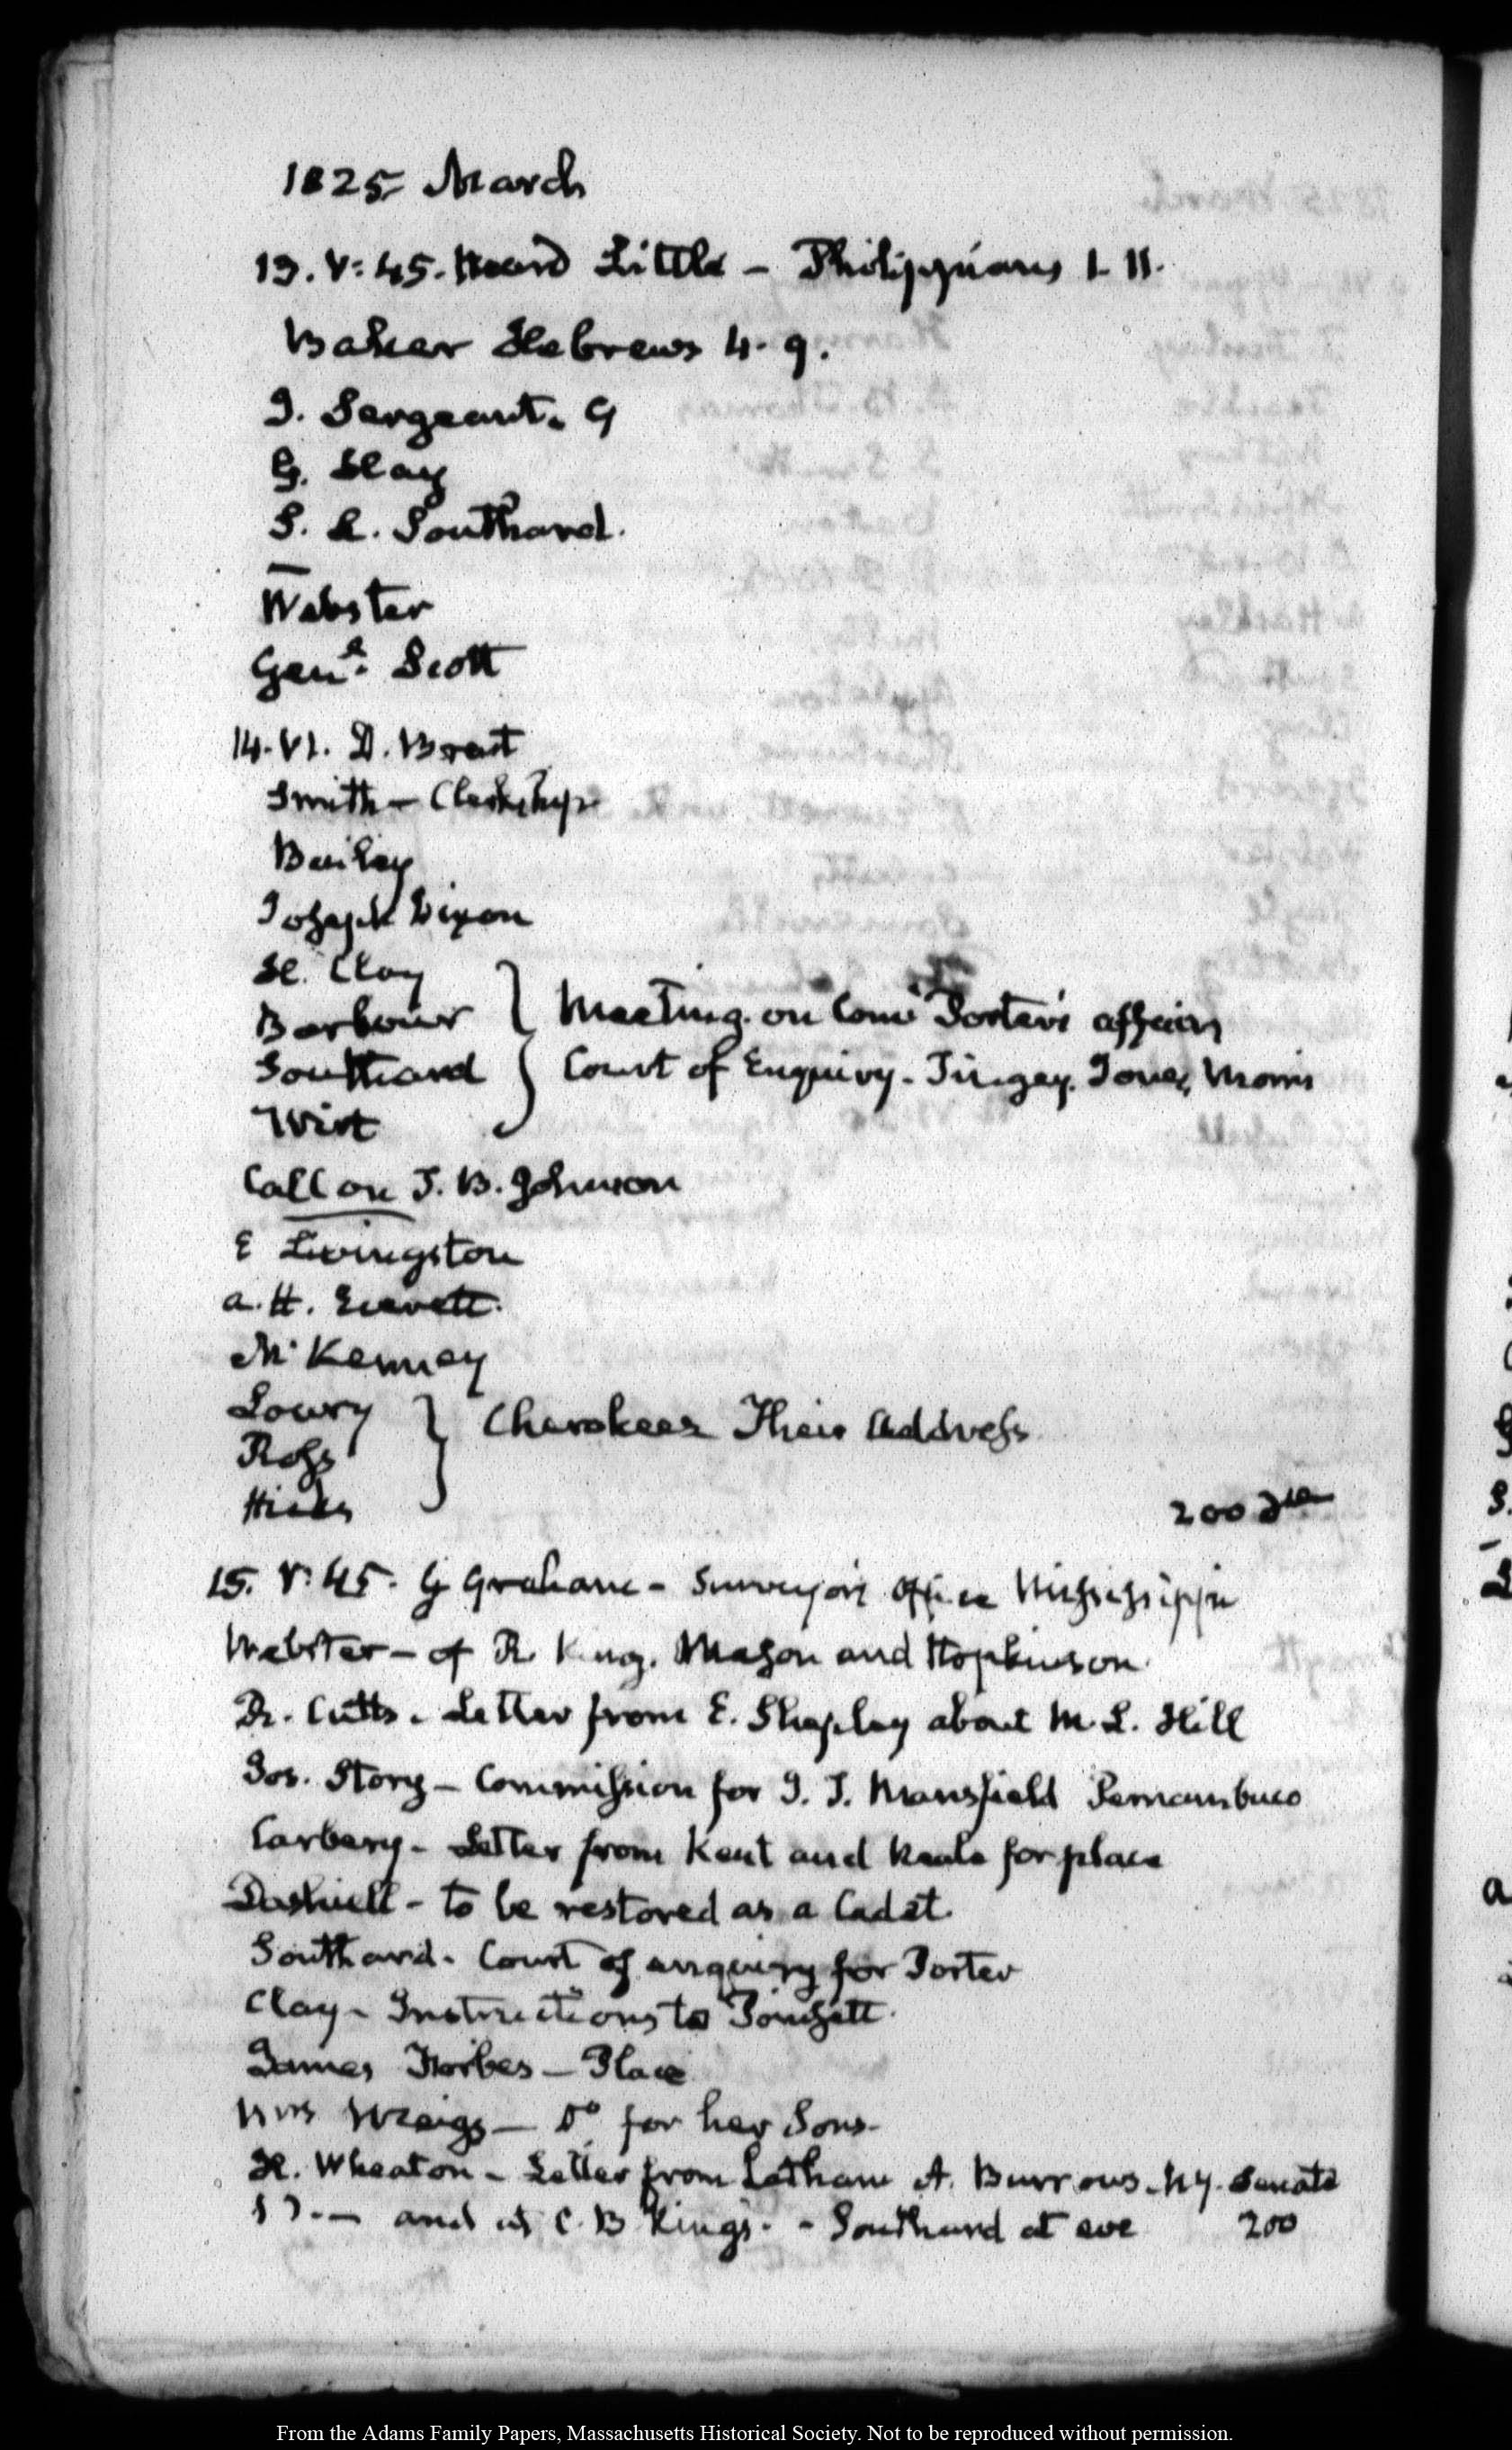 1825 March
13. V: 45. Heard Little – Philippians 1. 11.
Baker Hebrews 4. 9.
J. Sergeant. 9
H. Clay
S. L. Southard.
Webster
Genl. Scott
14. VI. D. Brent
Smith – Clerkship
Bailey
Joseph Dixon
H. Clay
Barbour } Meeting on Comr Porter's affairs
Southard } Court of Enquiry. Tingey. Jones, Morris
Wirt
Call on J. B. Johnson
E Livingston
A. H. Everett.
McKenney
Lowry
Ross } Cherokees Their Address
Hicks
200
15. V: 45. G Graham – Surveyors Office Mississippi
Webster – of R. King. Mason and Hopkinson.
R. Cutts. Letter from E. Shepley about M. L. Hill
Jos. Story – Commission for J. T. Mansfield Pernambuco
Carbery – Letter from Kent and Neale for place
Dashiell – to be restored as a Cadet.
Southard – Court of enquiry for Porter
Clay – Instructions to Poinsett.
James Forbes – Place
Mrs Meigs – Do. for her Sons –
H. Wheaton – Letter from Latham A. Burrows. N Y. Senate
– and at C. B King's. – Southard at eve 200
From the Adams Family Papers, Massachusetts Historical Society. Not to be reproduced without permission.